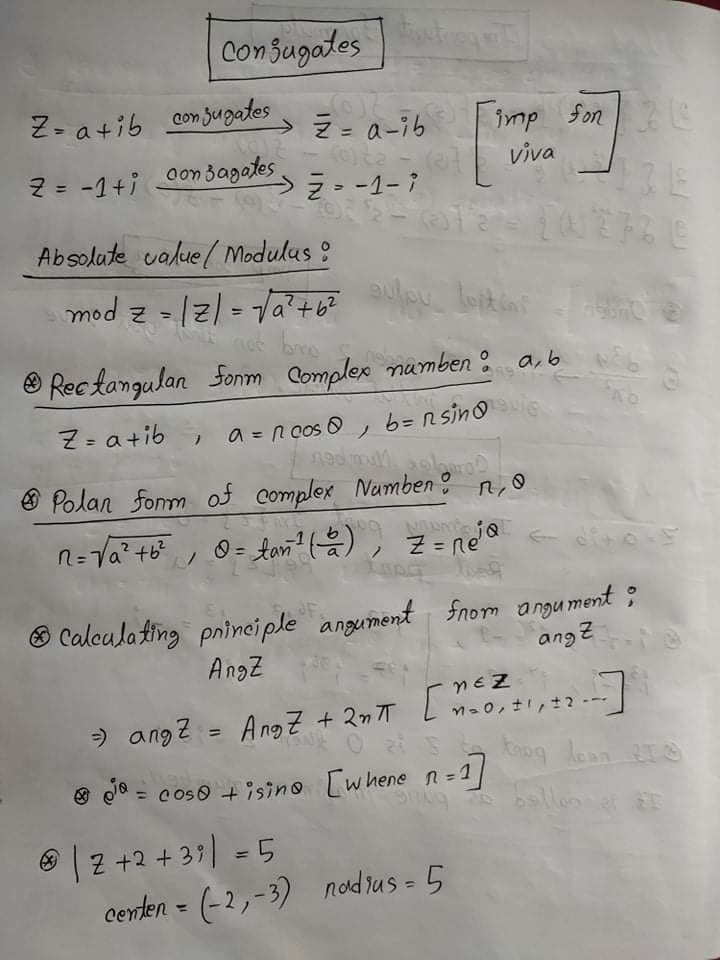 Conjugates
Z = a+ib conjugates → Z̄ = a-ib [imp for viva]
Z = -1+i conjagates → Z̄ = -1-i
Absolute value/Modulus:
mod z = |Z| = √a²+b²
⊛ Rectangular form Complex number: a,b
Z = a+ib , a = r cosθ , b = r sinθ
⊛ Polar form of complex Number: r, θ
r = √a²+b² , θ = tan⁻¹(b/a) , Z = re^iθ
⊛ Calculating principle argument from argument:
ArgZ argZ
⇒ argZ = ArgZ + 2nπ [n∈Z n=0, ±1, ±2 ---]
⊛ e^iθ = cosθ + isinθ [where r = 1]
⊛ |Z+2+3i| = 5
center = (-2,-3) radius = 5